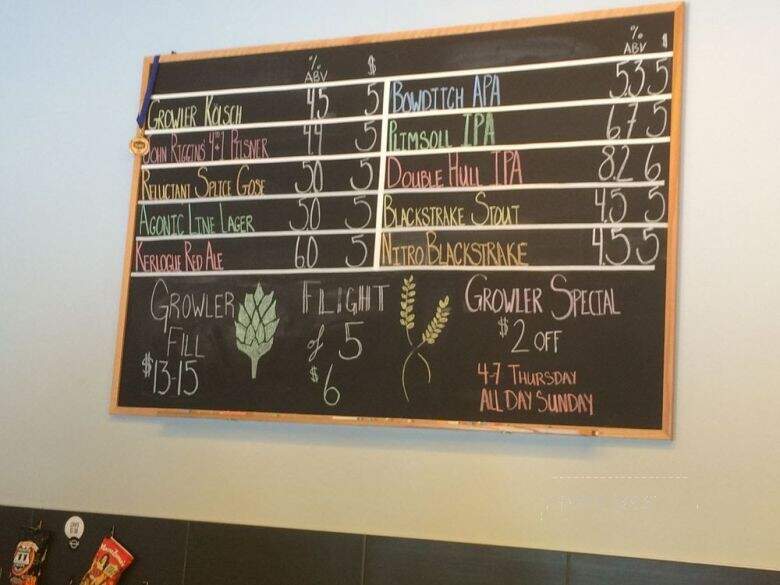 % ABV $
Growler Kölsch 4.5 5
John Riggins' 44 Pilsner 4.4 5
Reluctant Splice Gose 5.0 5
Agonic Line Lager 5.0 5
Kerlogue Red Ale 6.0 5
% ABV $
Bowditch APA 5.3 5
Plimsoll IPA 6.7 5
Double Hull IPA 8.2 6
Blackstrake Stout 4.5 5
Nitro Blackstrake 4.5 5
Growler Fill
$13-15
Flight
of 5
$6
Growler Special
$2 off
4-7 Thursday
All Day Sunday